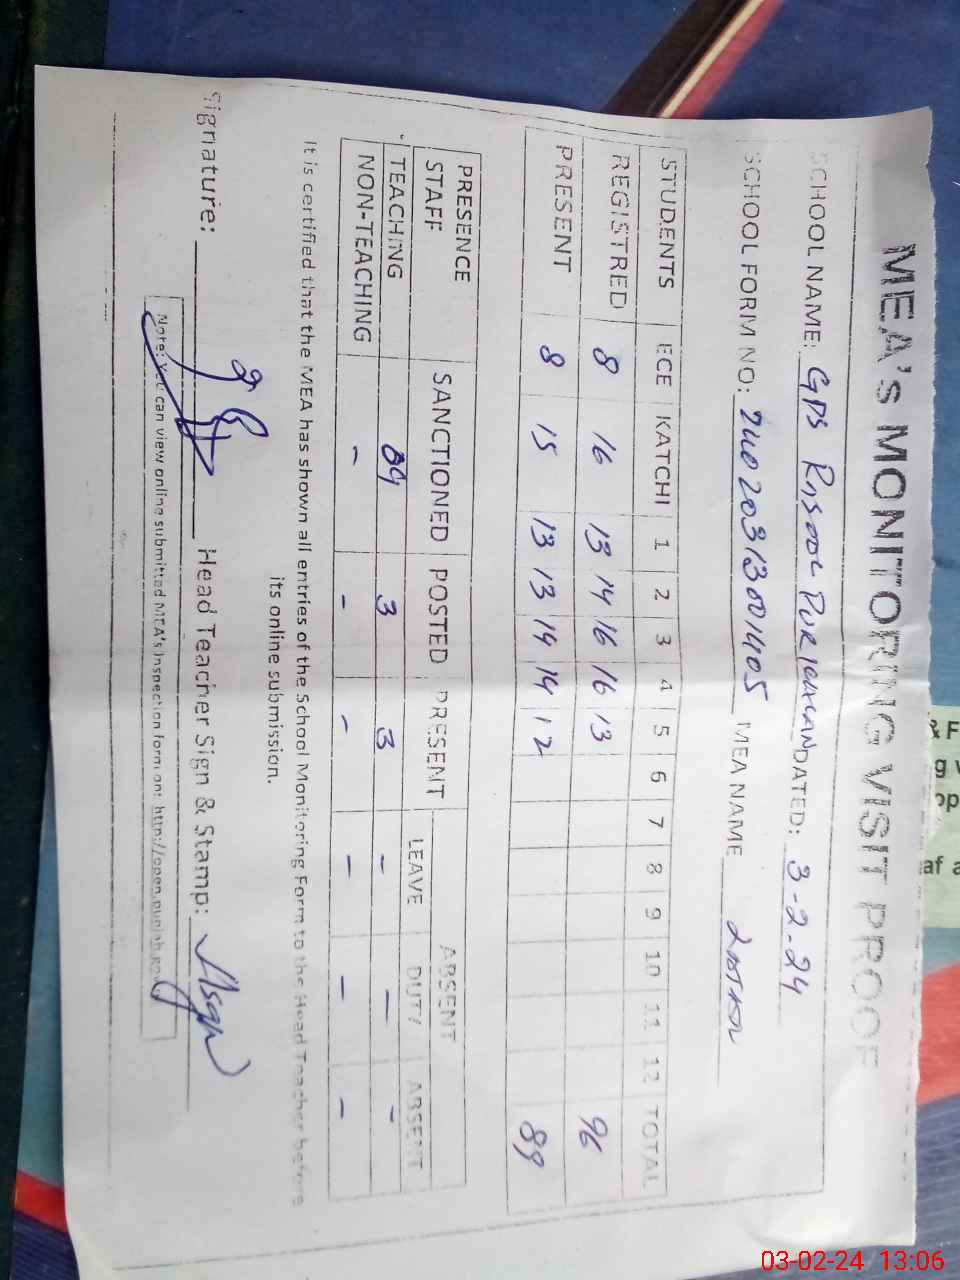 MEA's MONITORING VISIT PROOF
SCHOOL NAME: GPS Rasool Pur DATED: 3-2-24
SCHOOL FORM NO: MEA NAME
STUDENTS ECE KATCHI 1 2 3 4 5 6 7 8 9 10 11 12 TOTAL
REGISTRED 8 16 13 14 16 16 13 96
PRESENT 8 15 13 13 14 14 12 89
PRESENCE STAFF SANCTIONED POSTED PRESENT ABSENT
LEAVE DUTY ABSENT
TEACHING 04 3 3 - - -
NON-TEACHING - - - - - -
It is certified that the MEA has shown all entries of the School Monitoring Form to the Head Teacher before
its online submission.
Signature: Head Teacher Sign & Stamp:
Note: You can view online submitted MEA's Inspection form on: http://open.punjab.gov
& F
g
op
af a
03-02-24 13:06